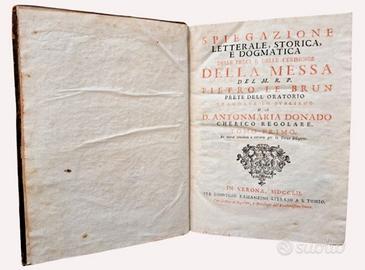 SPIEGAZIONE
LETTERALE, STORICA,
E DOGMATICA
DELLE PRECI E DELLE CEREMONIE
DELLA MESSA
DEL M. R. P.
PIETRO LE BRUN
PRETE DELL'ORATORIO
D. ANTONMARIA DONADO
CHERICO REGOLARE.
TOMO PRIMO.
IN VERONA, MDCCLII.
PER DIONIGIO RAMANZINI LIBRAJO A S. TOMIO.
subito